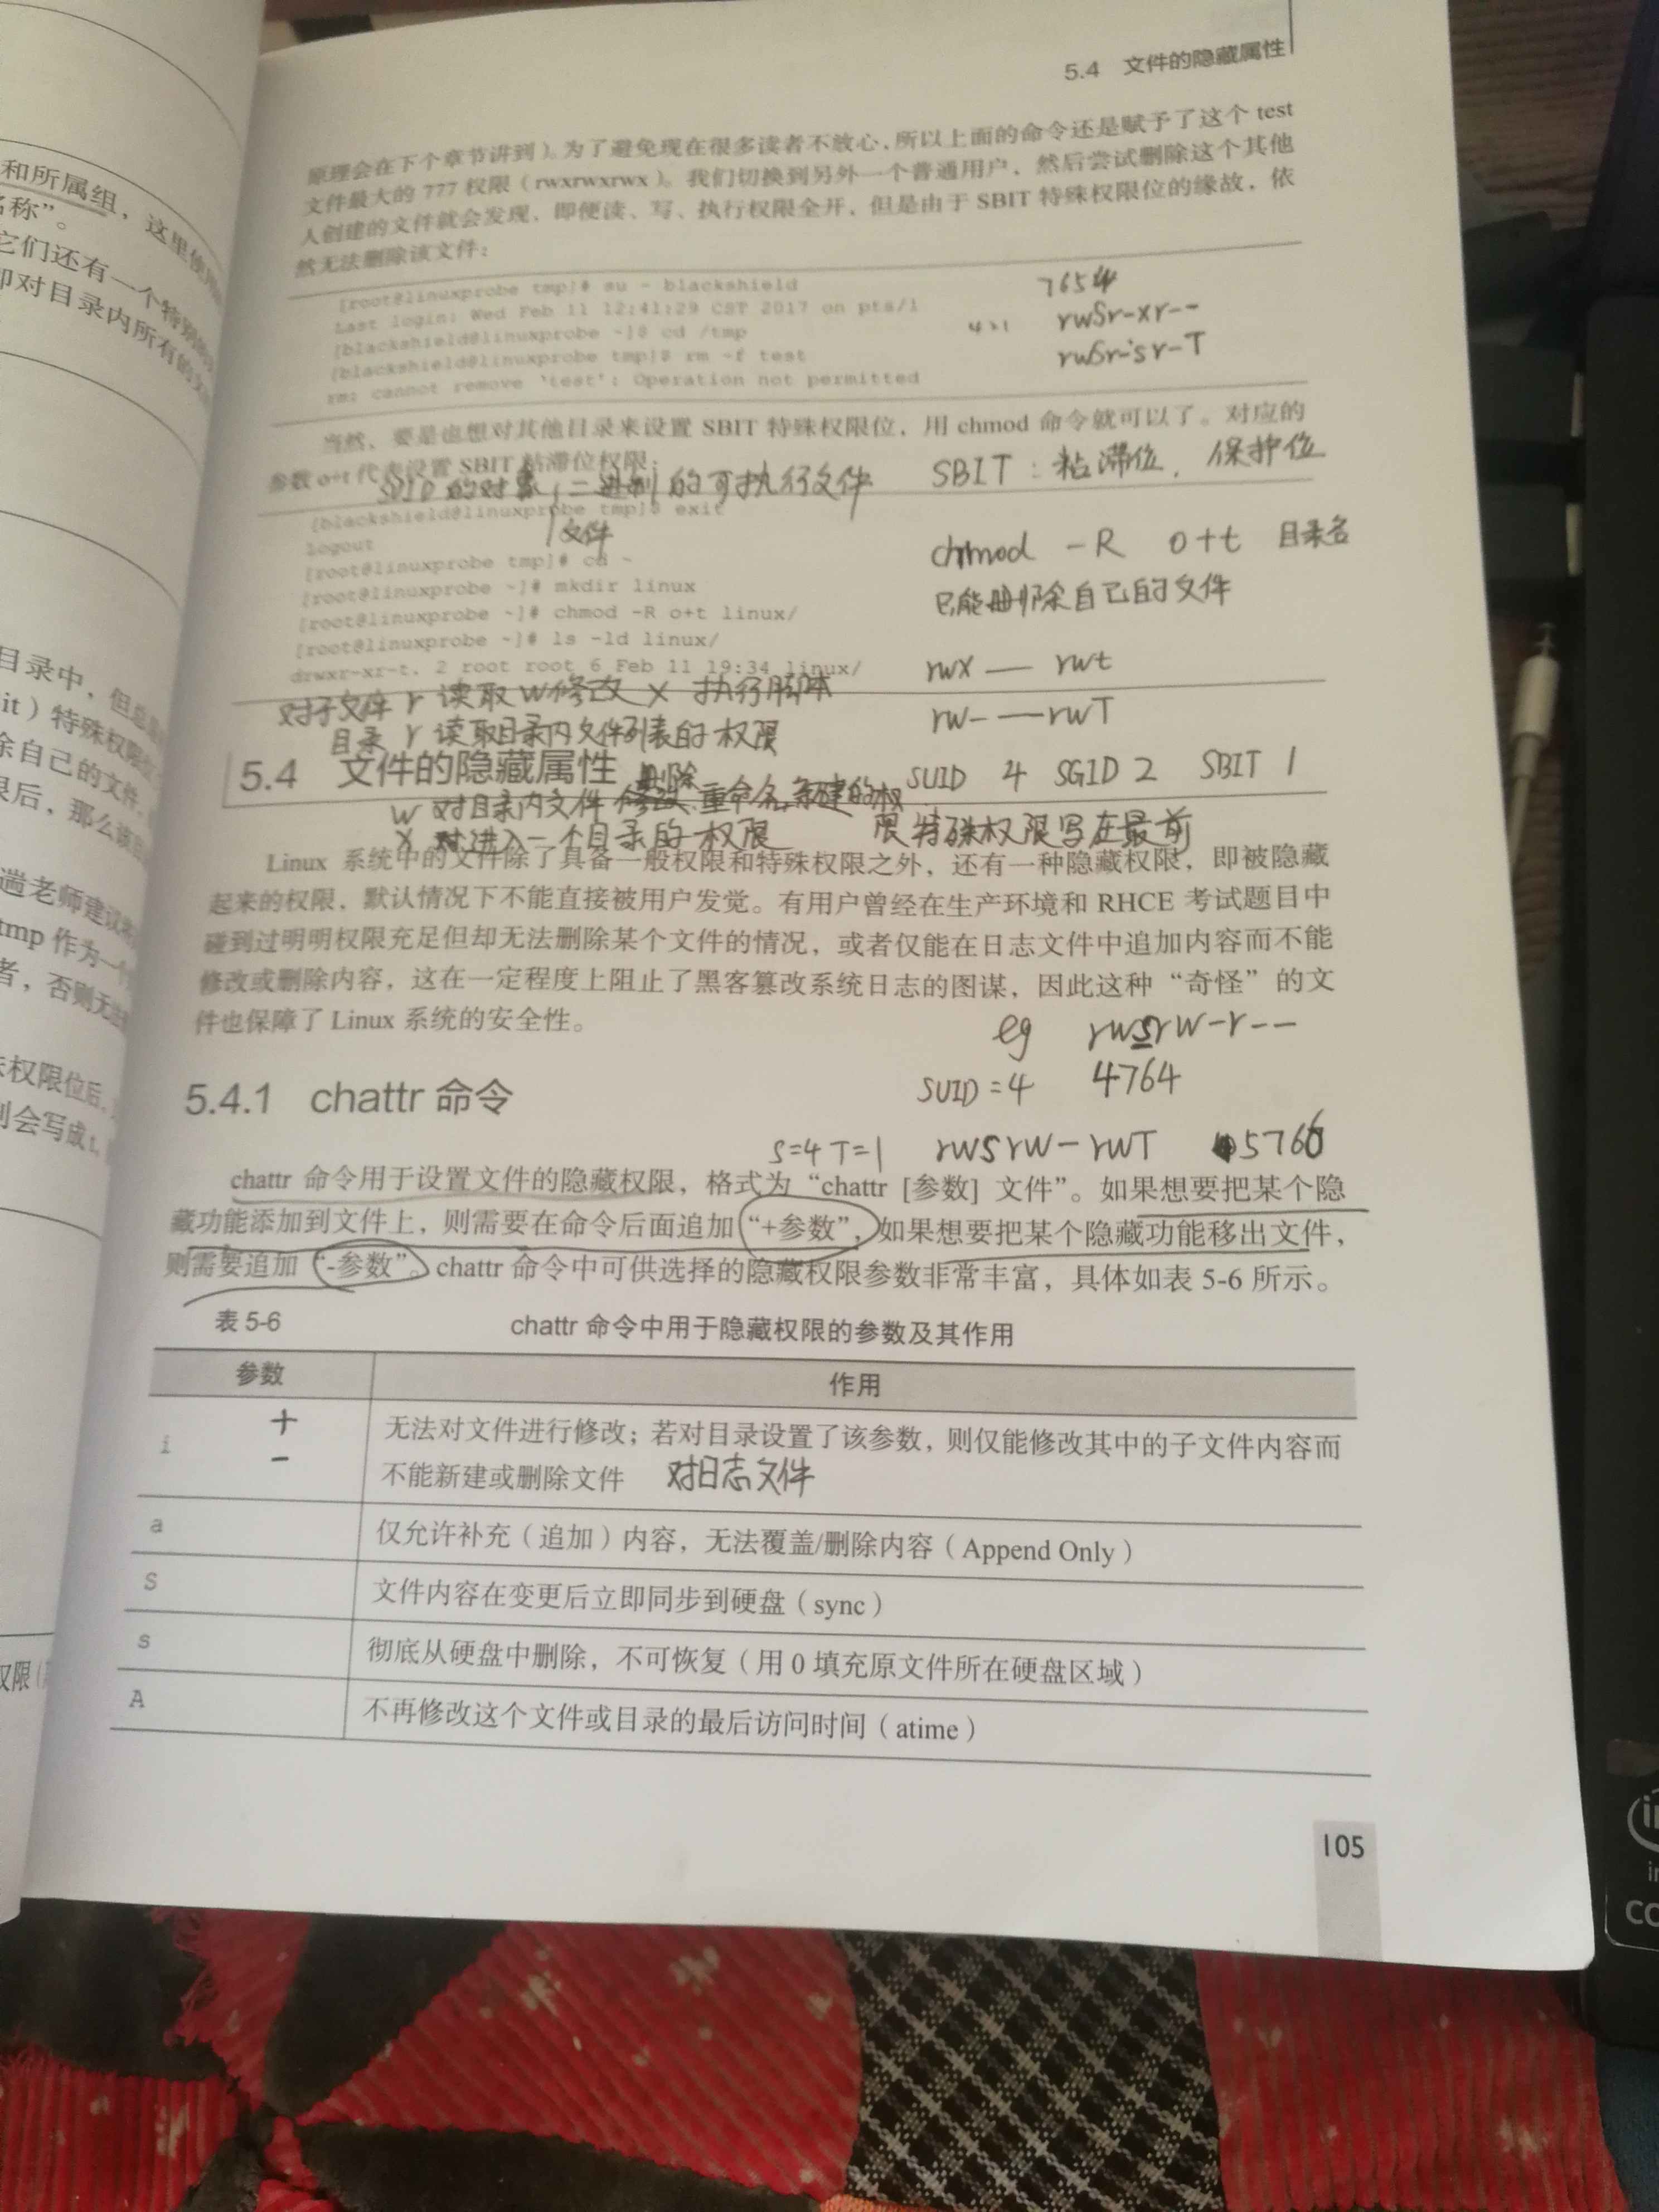 5.4 文件的隐藏属性
原理会在下个章节讲到)。为了避免现在很多读者不放心,所以上面的命令还是赋予了这个 test
文件最大的 777 权限(rwxrwxrwx)。我们切换到另外一个普通用户,然后尝试删除这个其他
人创建的文件就会发现,即便读、写、执行权限全开,但是由于 SBIT 特殊权限位的缘故,依
然无法删除该文件:
[root@linuxprobe tmp]# su - blackshield
Last login: Wed Feb 11 12:41:29 CST 2017 on pts/1
[blackshield@linuxprobe ~]$ cd /tmp
[blackshield@linuxprobe tmp]$ rm -f test
rm: cannot remove 'test': Operation not permitted
7654
rwSr-xr--
rwSr-sr-T
当然,要是也想对其他目录来设置 SBIT 特殊权限位,用 chmod 命令就可以了。对应的
参数 o+t 代表设置 SBIT 粘滞位权限:
SUID 的对象,二进制的可执行文件
文件
SBIT:粘滞位、保护位
[blackshield@linuxprobe tmp]$ exit
logout
[root@linuxprobe tmp]# cd ~
[root@linuxprobe ~]# mkdir linux
[root@linuxprobe ~]# chmod -R o+t linux/
[root@linuxprobe ~]# ls -ld linux/
drwxr-xr-t. 2 root root 6 Feb 11 19:34 linux/
chmod -R o+t 目录名
只能删除自己的文件
rwx — rwt
rw- — rwT
对于文件 r 读取 w 修改 x 执行脚本
目录 r 读取目录内文件列表的权限
5.4 文件的隐藏属性
删除
w 对目录内文件 修改、重命名、新建的权
限
x 对进入一个目录的权限
SUID 4 SGID 2 SBIT 1
特殊权限写在最前
Linux 系统中的文件除了具备一般权限和特殊权限之外,还有一种隐藏权限,即被隐藏
起来的权限,默认情况下不能直接被用户发觉。有用户曾经在生产环境和 RHCE 考试题目中
碰到过明明权限充足但却无法删除某个文件的情况,或者仅能在日志文件中追加内容而不能
修改或删除内容,这在一定程度上阻止了黑客篡改系统日志的图谋,因此这种“奇怪”的文
件也保障了 Linux 系统的安全性。
eg rwsrw-r--
SUID=4 4764
5.4.1 chattr 命令
s=4 T=1 rwsrw-rwT 5766
chattr 命令用于设置文件的隐藏权限,格式为“chattr [参数] 文件”。如果想要把某个隐
藏功能添加到文件上,则需要在命令后面追加“+参数”,如果想要把某个隐藏功能移出文件,
则需要追加“-参数”。chattr 命令中可供选择的隐藏权限参数非常丰富,具体如表 5-6 所示。
表 5-6 chattr 命令中用于隐藏权限的参数及其作用
参数 作用
+
-
i 无法对文件进行修改;若对目录设置了该参数,则仅能修改其中的子文件内容而
不能新建或删除文件 对日志文件
a 仅允许补充(追加)内容,无法覆盖/删除内容(Append Only)
S 文件内容在变更后立即同步到硬盘(sync)
s 彻底从硬盘中删除,不可恢复(用 0 填充原文件所在硬盘区域)
A 不再修改这个文件或目录的最后访问时间(atime)
105
和所属组,这里使
名称”。
它们还有一个特别
即对目录内所有的文
目录中,但总
it)特殊权限
余自己的文件
后,那么该
遄老师建议
tmp 作为一个
者,否则无法
权限位后,
则会写成 t,
权限(